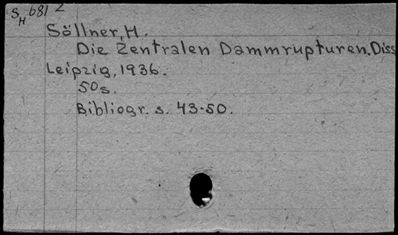 SH 681 2
Söllner, H.
Die Zentralen Dammrupturen. Diss
Leipzig, 1936.
50 s.
Bibliogr. s. 43-50.